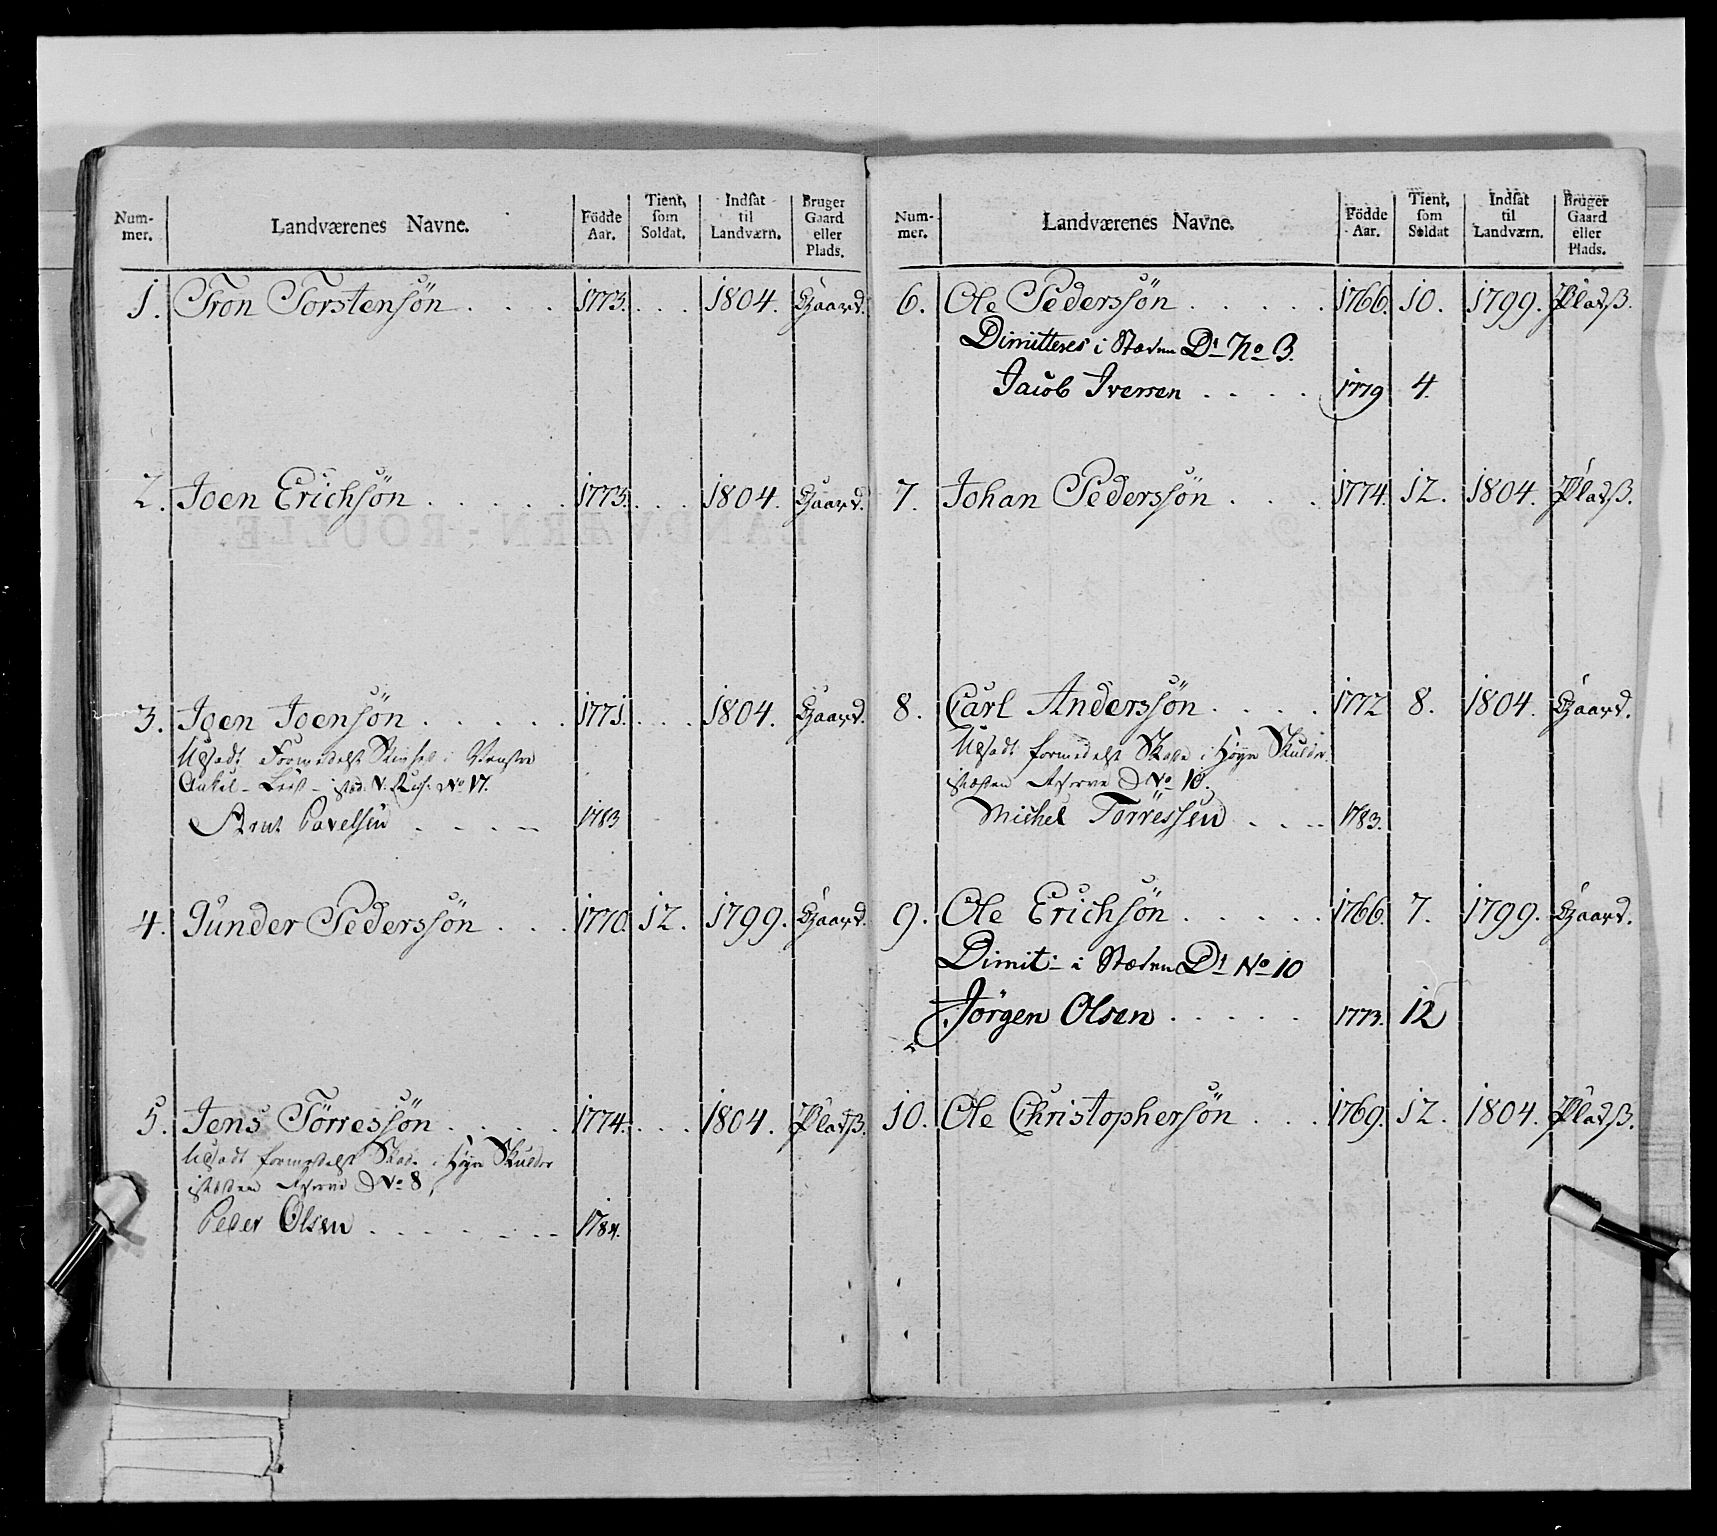 Num-mer. Landværenes Navne. Födde Aar. Tient, som Soldat. Indsat til Landværn. Bruger Gaard eller Plads.
1. Tron Torstensön . . . . 1773. . . . 1804. Gaard.
2. Joen Erichsön . . . . . 1773. . . . 1804. Gaard.
3. Joen Joensön . . . . . 1771. . . . 1804. Gaard.
Udsadt Formedelst i Venstre
No 17.
Arnt Pavelsen . . . . 1783
4. Gunder Pederssön . . . 1770. 12. 1799. Gaard.
5. Jens Törressön . . . . 1774. . . . 1804. Pladß.
Udsadt formedelst Skade i Höyre Skulder
No 8
Peder Olsen . . . . . . 1784.
Num-mer. Landværenes Navne. Födde Aar. Tient, som Soldat Indsat til Landværn. Bruger Gaard eller Plads.
6. Ole Pederssön . . . . . 1766. 10. 1799. Pladß.
Dimitteres i Stæden Dt No 3.
Jacob Iversen . . . . 1779 4.
7. Johan Pederssön . . . 1774. 12. 1804. Pladß.
8. Carl Anderssön . . . . 1772 8. 1804. Gaard.
Udsadt formedelst Skade i Höyre Skulder
No 10.
Michel Törressen . . . 1783.
9. Ole Erichsön . . . . . 1766. 7. 1799. Gaard.
Dimit: i Stæden Dt No 10
Jörgen Olsen . . . . . 1773. 12
10. Ole Christophersön . . . 1769. 12. 1804. Pladß.